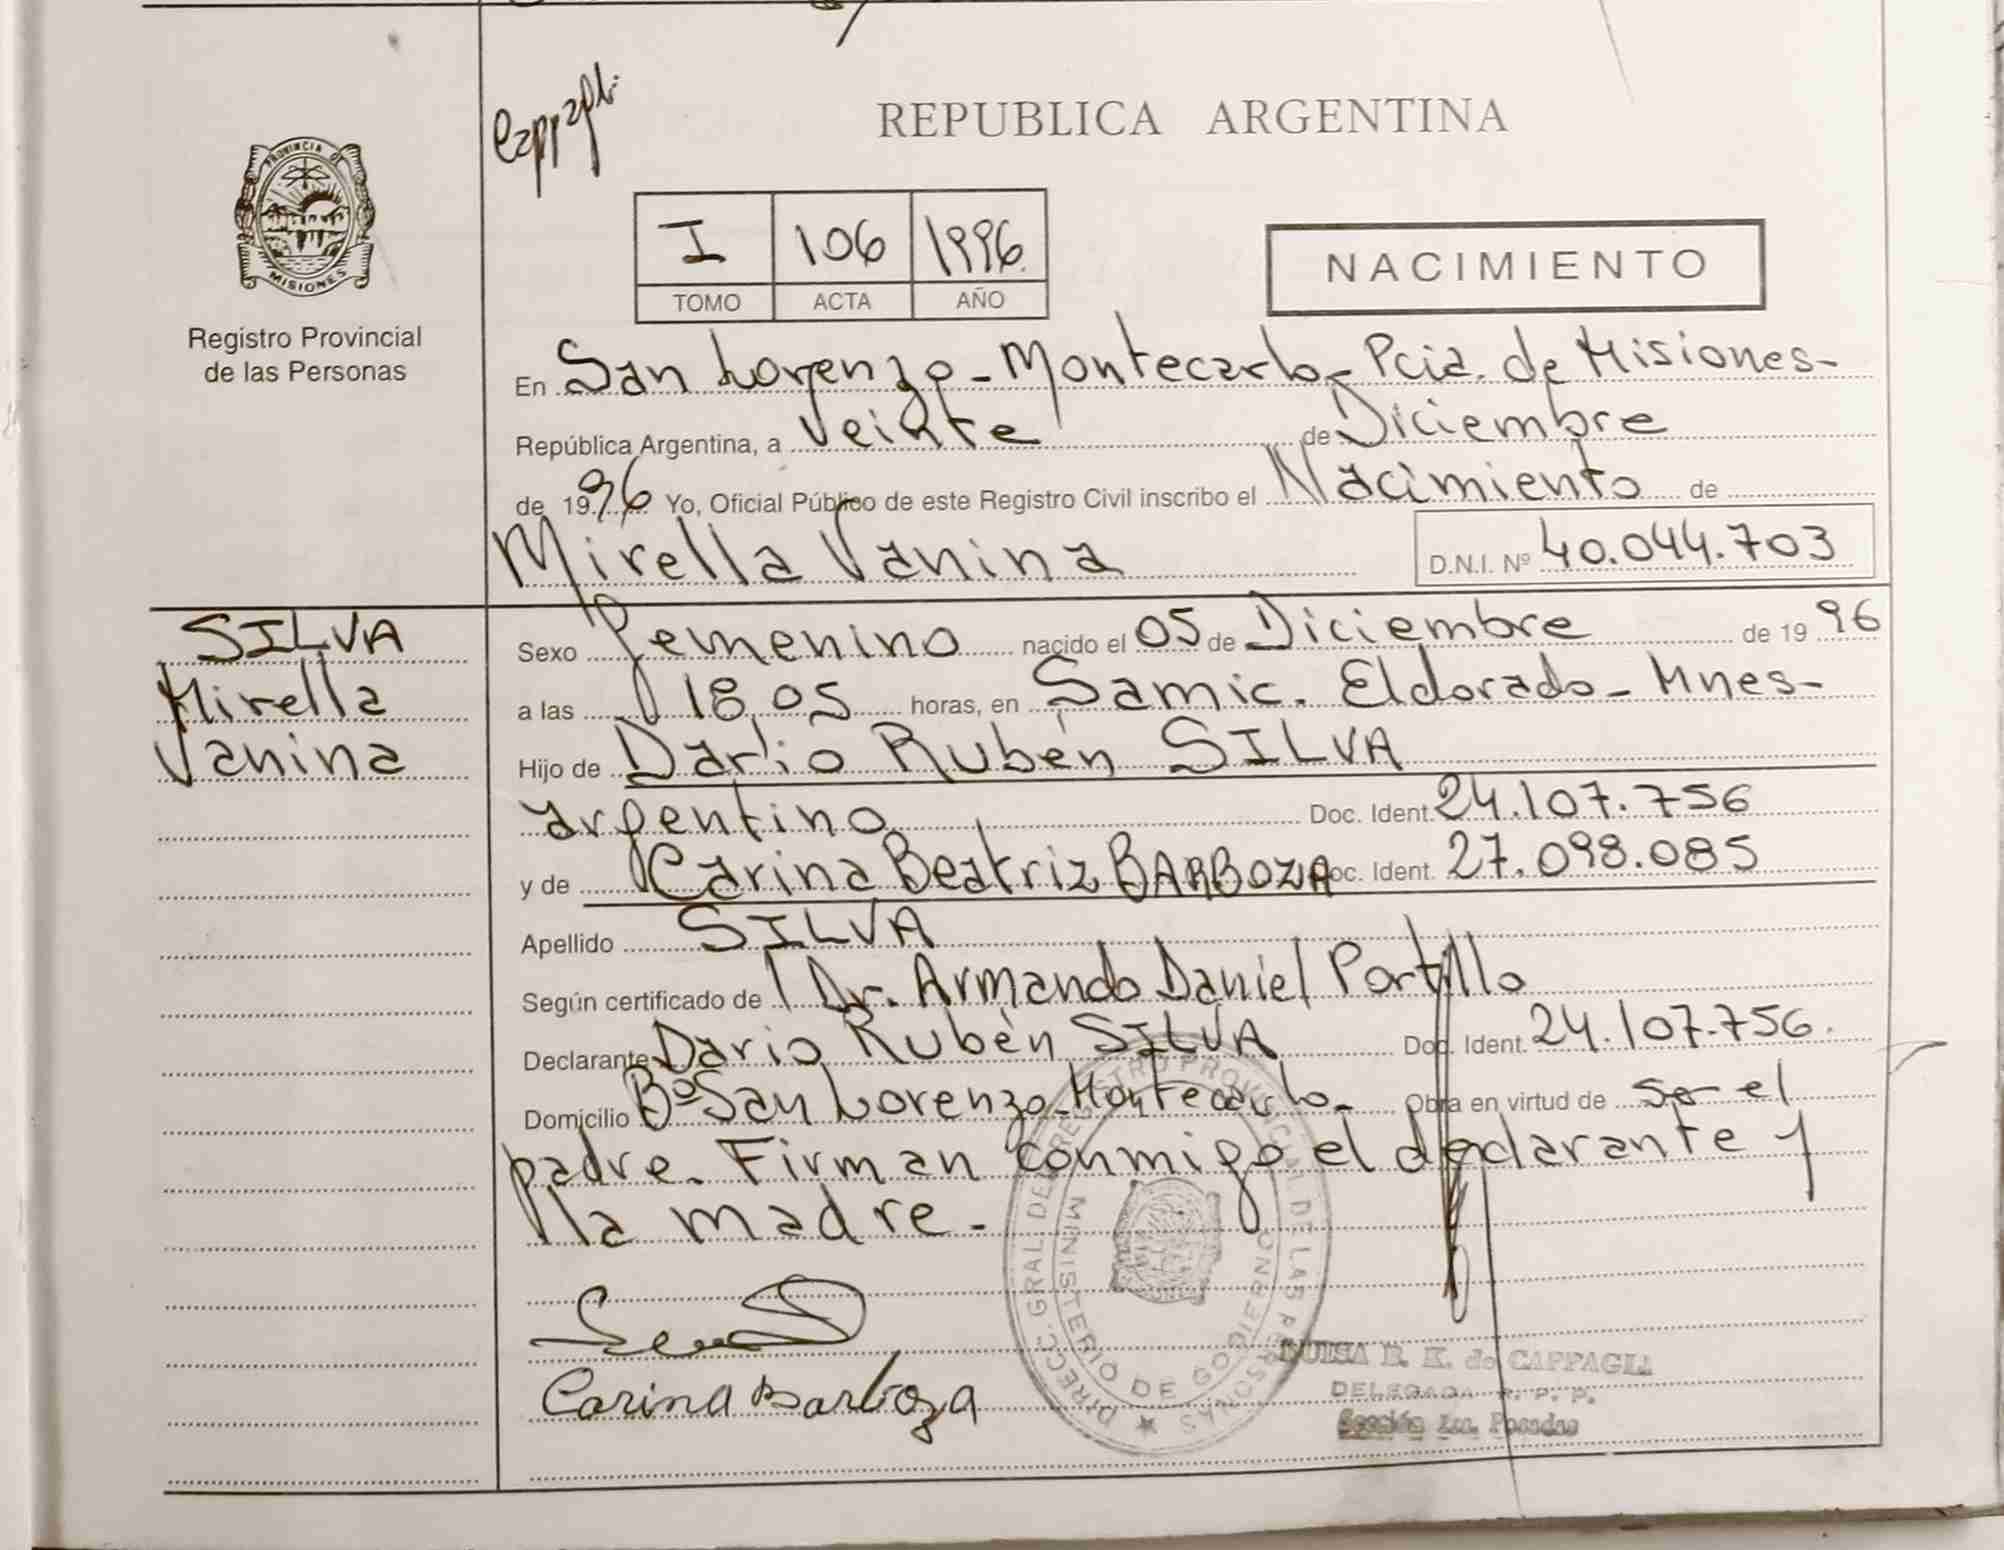 REPUBLICA ARGENTINA
PROVINCIA DE
MISIONES
Registro Provincial
de las Personas
I 106 1996
TOMO ACTA AÑO
NACIMIENTO
En San Lorenzo - Montecarlo - Pcia. de Misiones -
República Argentina, a Veinte de Diciembre
de 1996 Yo, Oficial Público de este Registro Civil inscribo el Nacimiento de
Mirella Vanina D.N.I. Nº 40.044.703
SILVA
Mirella
Vanina
Sexo Femenino nacido el 05 de Diciembre de 1996
a las 18,05 horas, en Samic. Eldorado - Mnes -
Hijo de Darío Rubén SILVA
argentino Doc. Ident. 24.107.756
y de Carina Beatriz BARBOZA Doc. Ident. 27.098.085
Apellido SILVA
Según certificado de Dr. Armando Daniel Portillo
Declarante Dario Rubén SILVA Doc. Ident. 24.107.756.
Domicilio Bº San Lorenzo - Montecarlo - Obra en virtud de ser el
padre. Firman conmigo el declarante y
la madre -
Carina Barboza
DIRECC. GRAL DEL REGISTRO PROVINCIAL DE LAS PERSONAS
MINISTERIO DE GOBIERNO
LUISA B. K. de CAPPAGLI
DELEGADA R. P. P.
Sección 1ra. Posadas